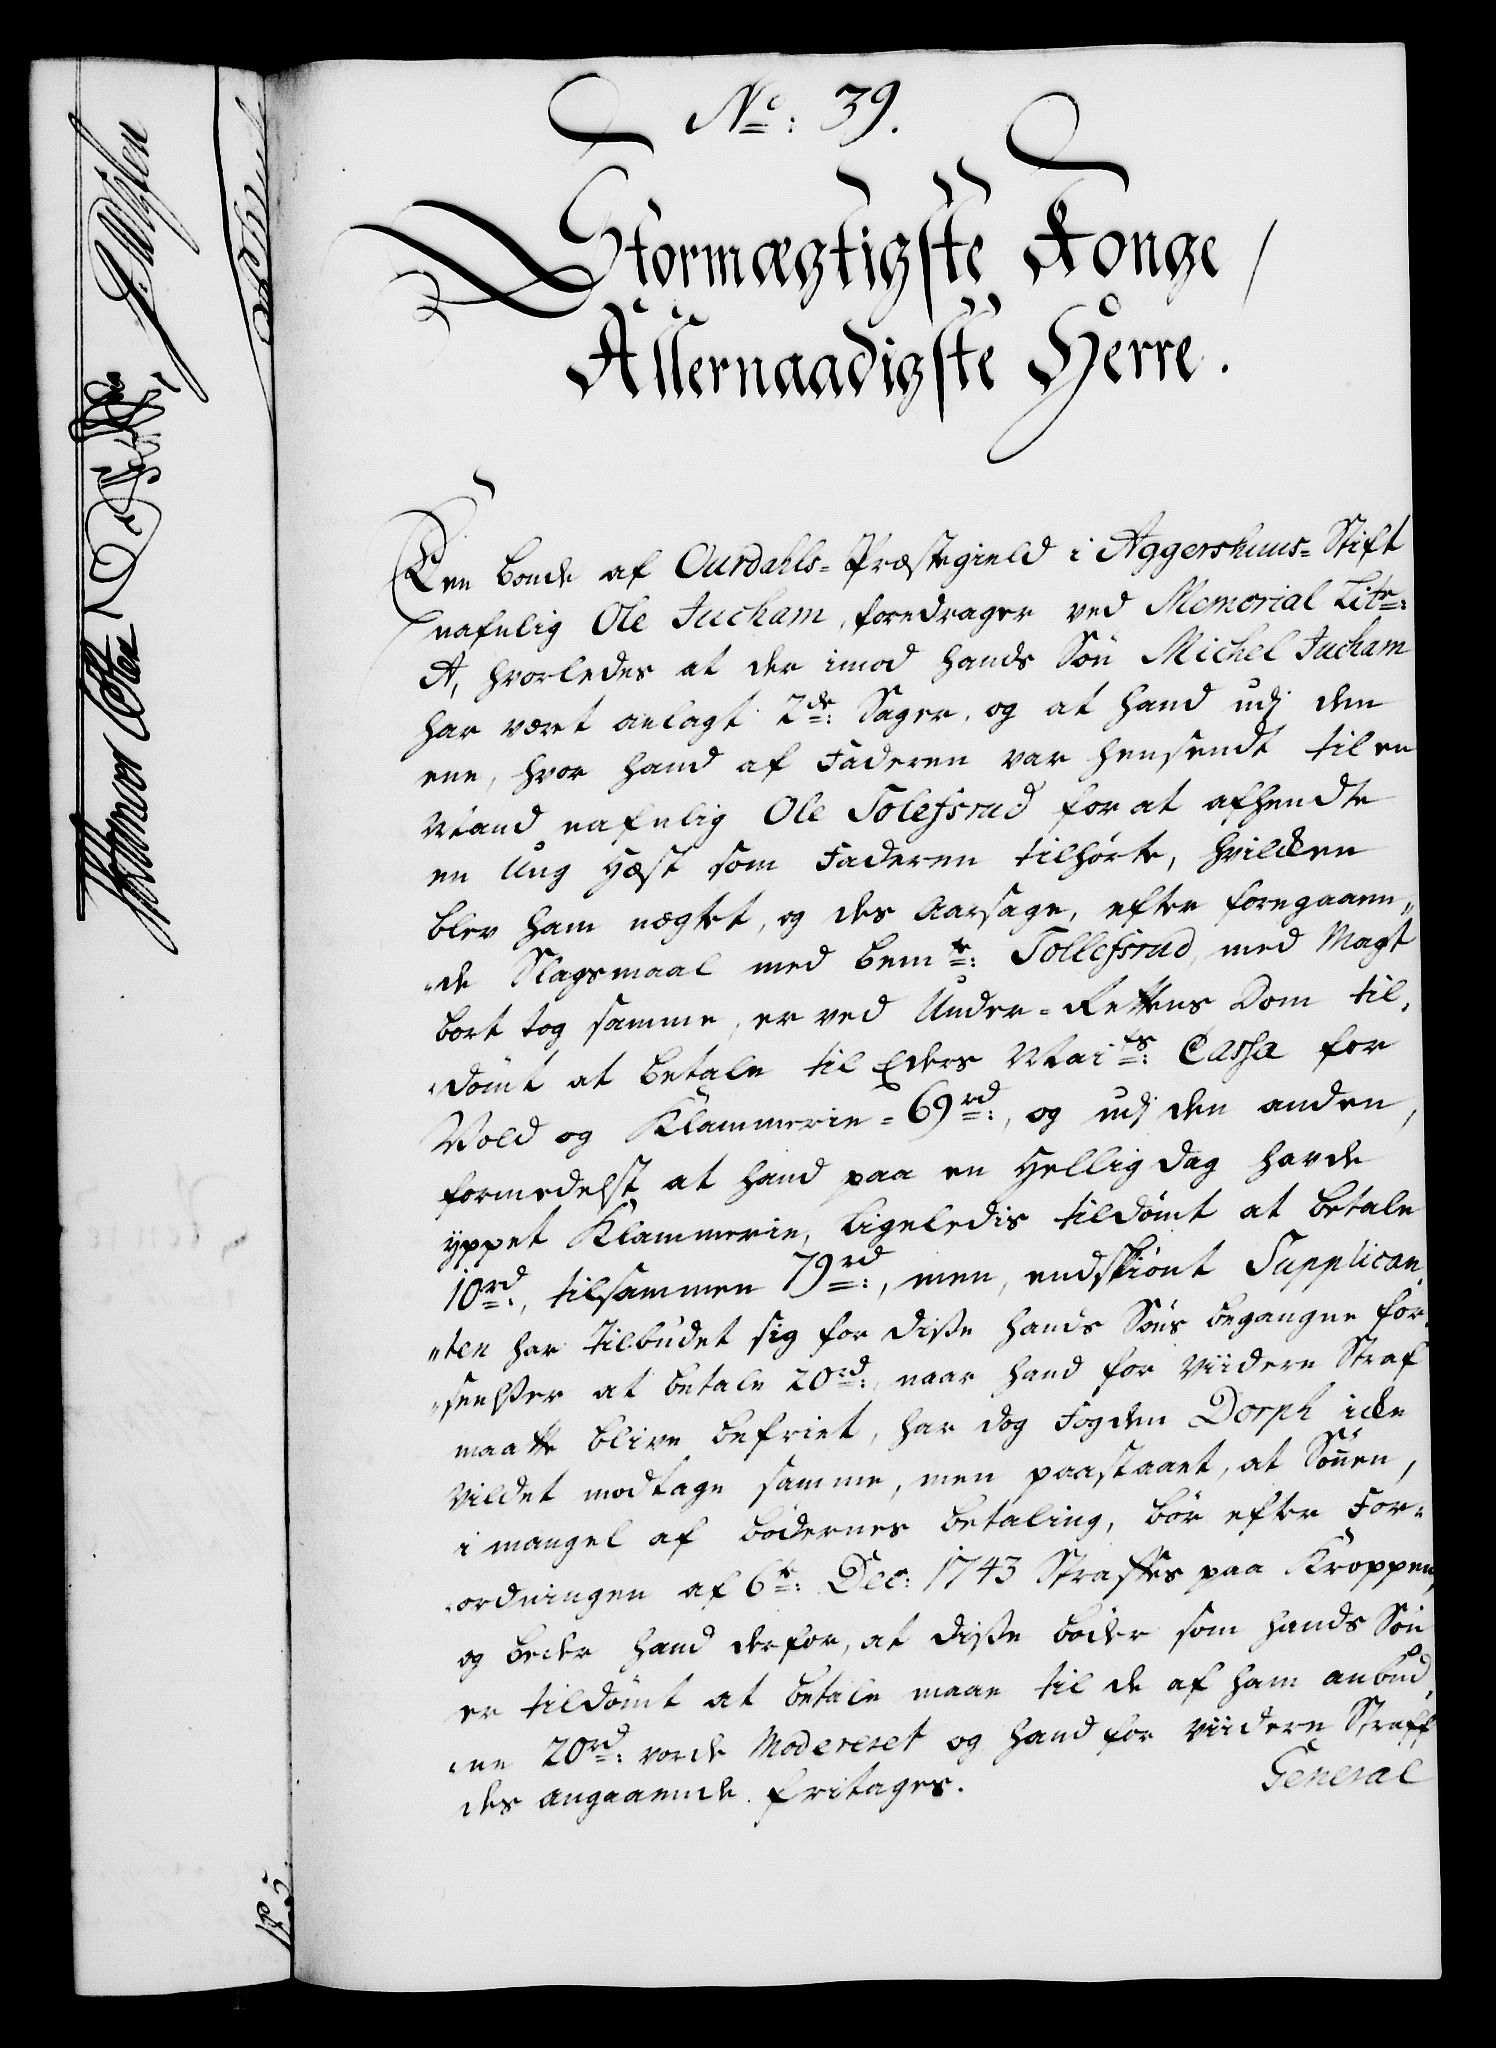 No: 39.
Stormægtigste Konge
Allernaadigste Herre.
Een bonde af Ourdahls-Præstegield i Aggershuus-Stift
nafnlig Ole Jucham, foredrager ved Memorial Litr:
A, hvorledes at der imod hands Sön Michel Jucham
har været anlagt 2de: Sager, og at hand udj den
ene, hvor hand af Faderen var hensendt til en
Mand nafnlig Ole Tolefsrud for at afhendte
en Ung Hæst som Faderen tilhørte, hvilcken
blev ham nægtet, og des Aarsage, efter foregaaen„
„de Slagsmaal med bemte: Tollefsrud, med Magt
bort tog samme, er ved Under-Rettens Dom til„
„dömt at betale til Eders Maits: Cassa for
Vold og Klammerie-69rd:, og udj den anden,
formedelst at hand paa en Hellig dag havde
yppet Klammerie, ligeledis tildömt at betale
10rd:, tilsammen 79rd:, men, endskiönt Supplican„
„ten har tilbudet sig for diße hands Söns begangne for„
„seelßer at betale 20rd:, naar hand for viidere Straf
maatte blive befriet, har dog Fogden Dorph icke
vildet modtage samme, men paastaaet, at Sönnen,
i mangel af bödernes betaling, bör efter For„
„ordningen af 6te: Dec: 1743 Straffes paa Kroppen,
og beder hand derfor, at diße böder som hands Sön
er tildömt at betale maae til de af ham anbud„
„ne 20rd: vorde Modereret og hand for viidere Straff
des angaaende fritages.
General